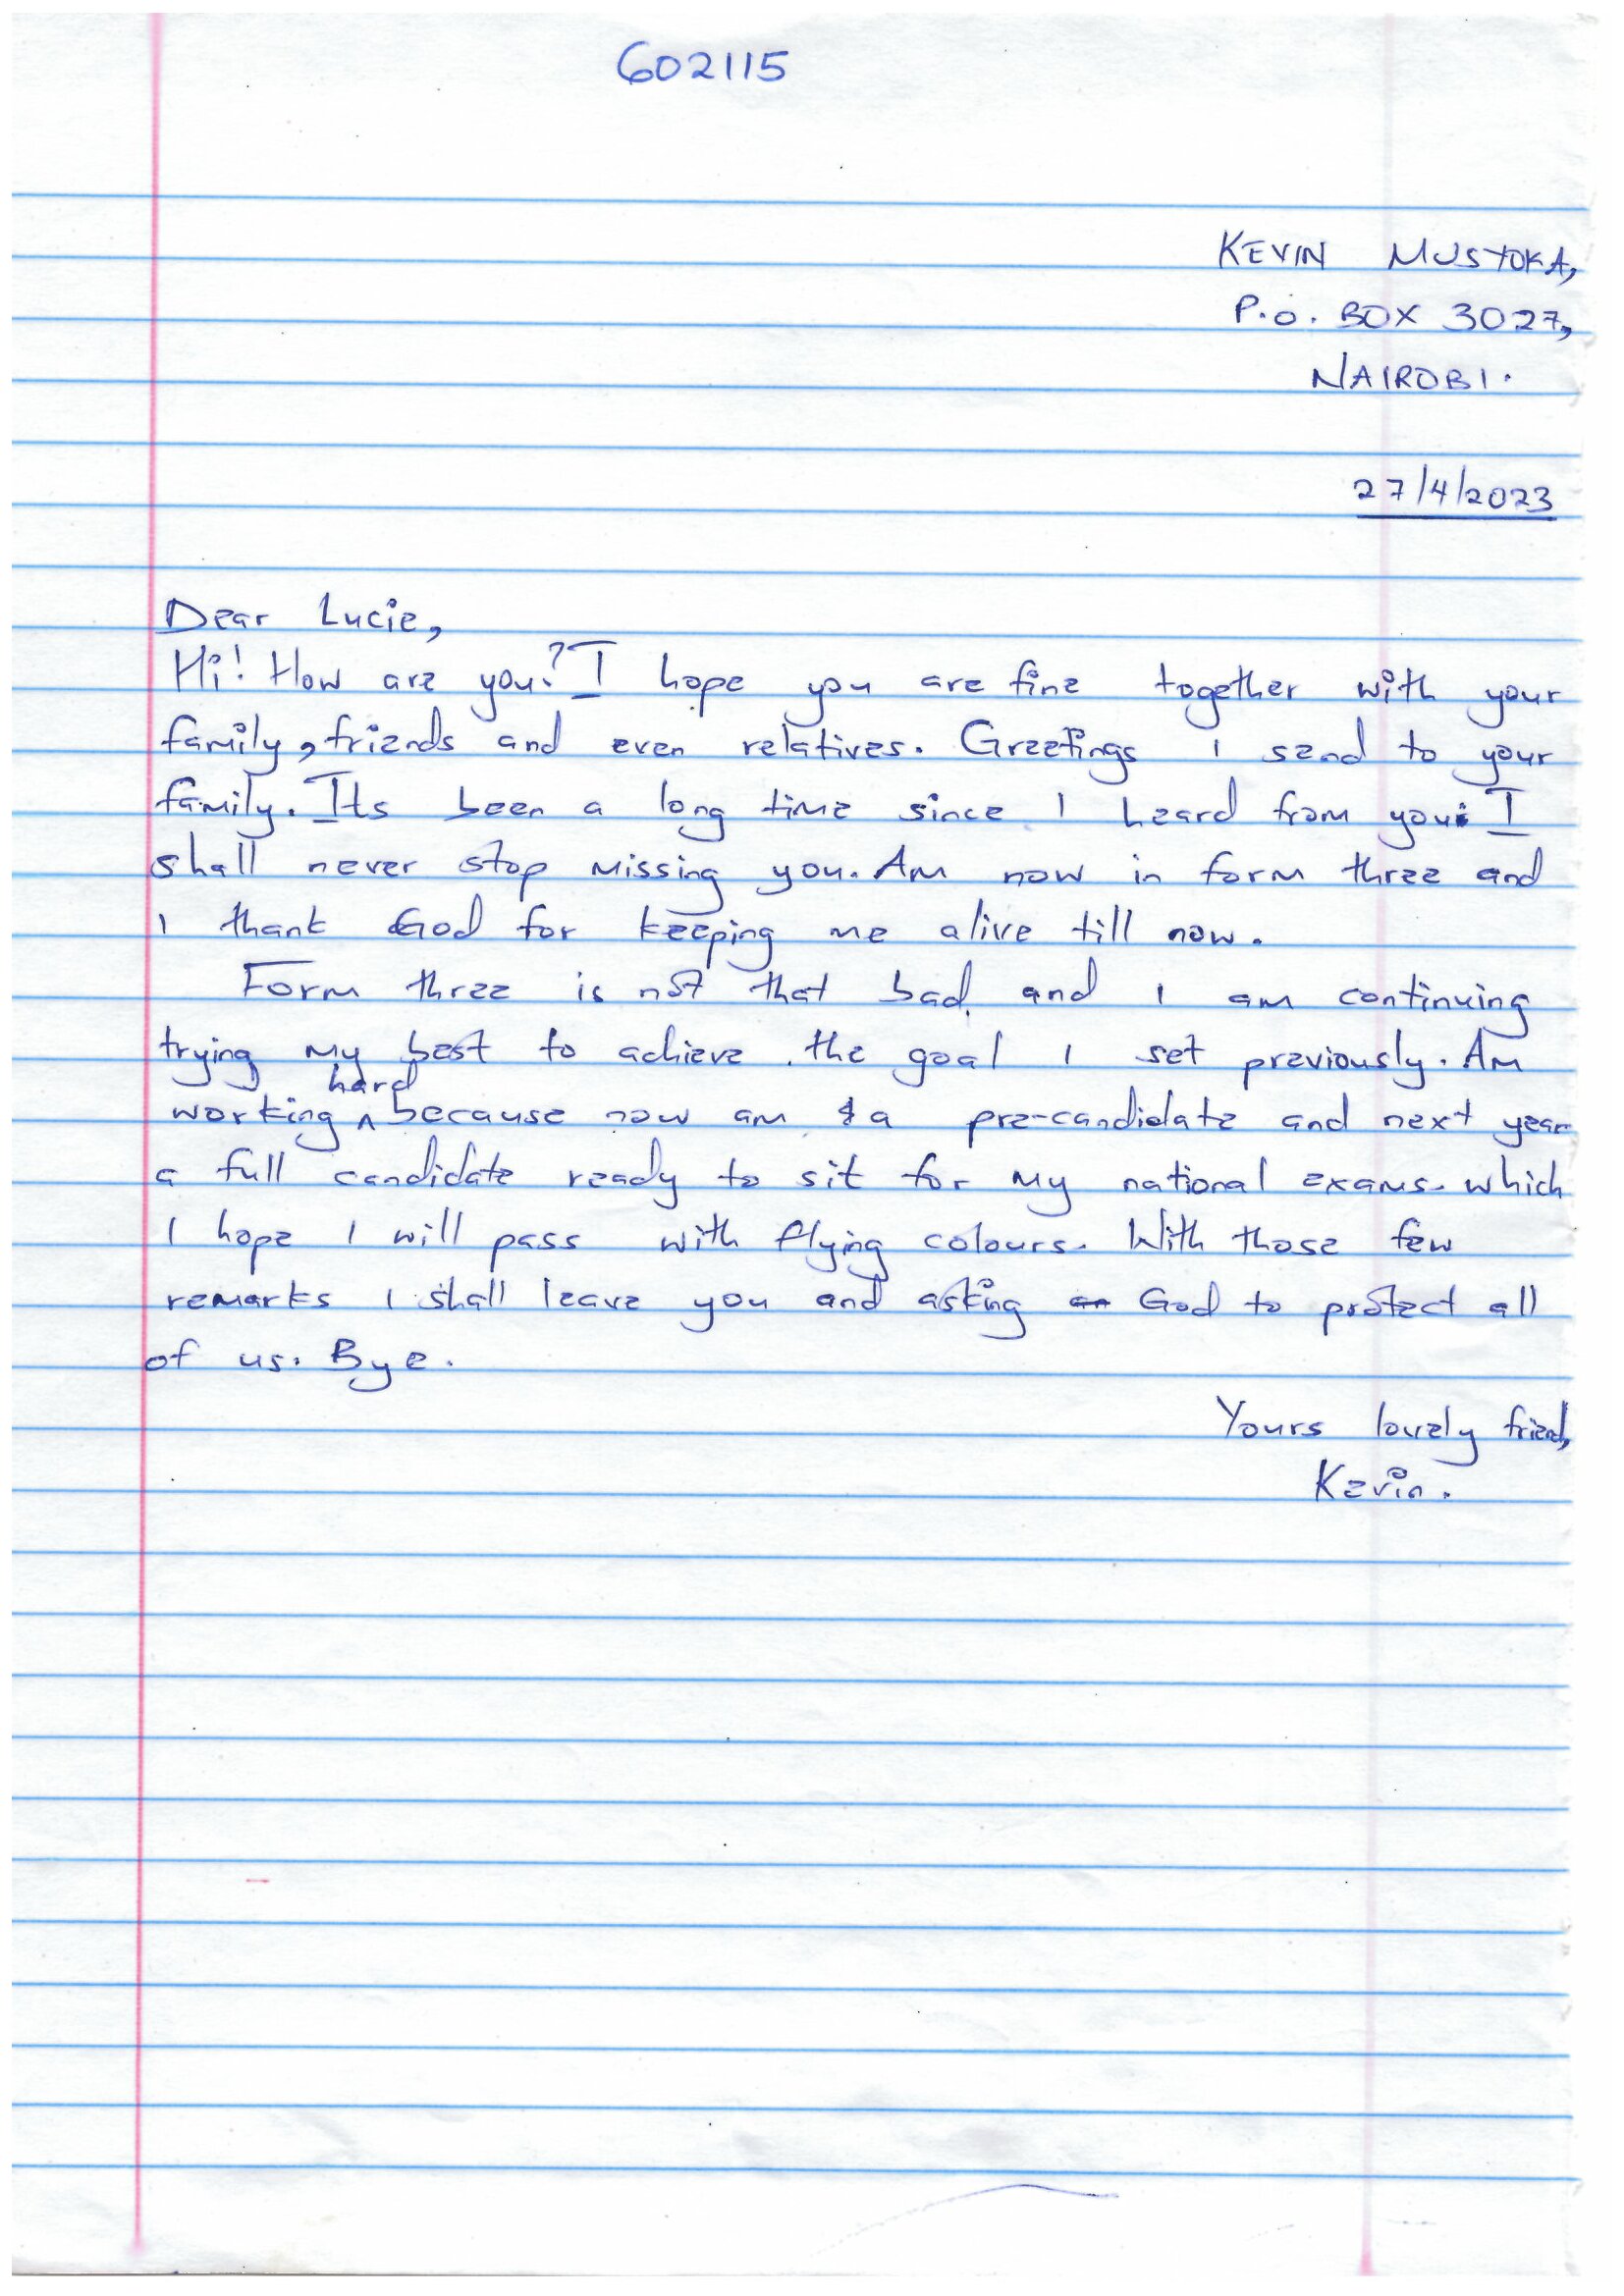 602115
KEVIN MUSYOKA,
P.o. BOX 3027,
NAIROBI.
27/4/2023
Dear Lucie,
Hi! How are you? I hope you are fine together with your
family, friends and even relatives. Greetings I send to your
family. Its been a long time since I heard from you. I
shall never stop missing you. Am now in form three and
I thank God for keeping me alive till now.
Form three is not that bad and I am continuing
trying my best to achieve the goal I set previously. Am
working hard because now am a pre-candidate and next year
a full candidate ready to sit for my national exams. which
I hope I will pass with flying colours. With those few
remarks I shall leave you and asking God to protect all
of us. Bye.
Yours lovely friend,
Kevin.